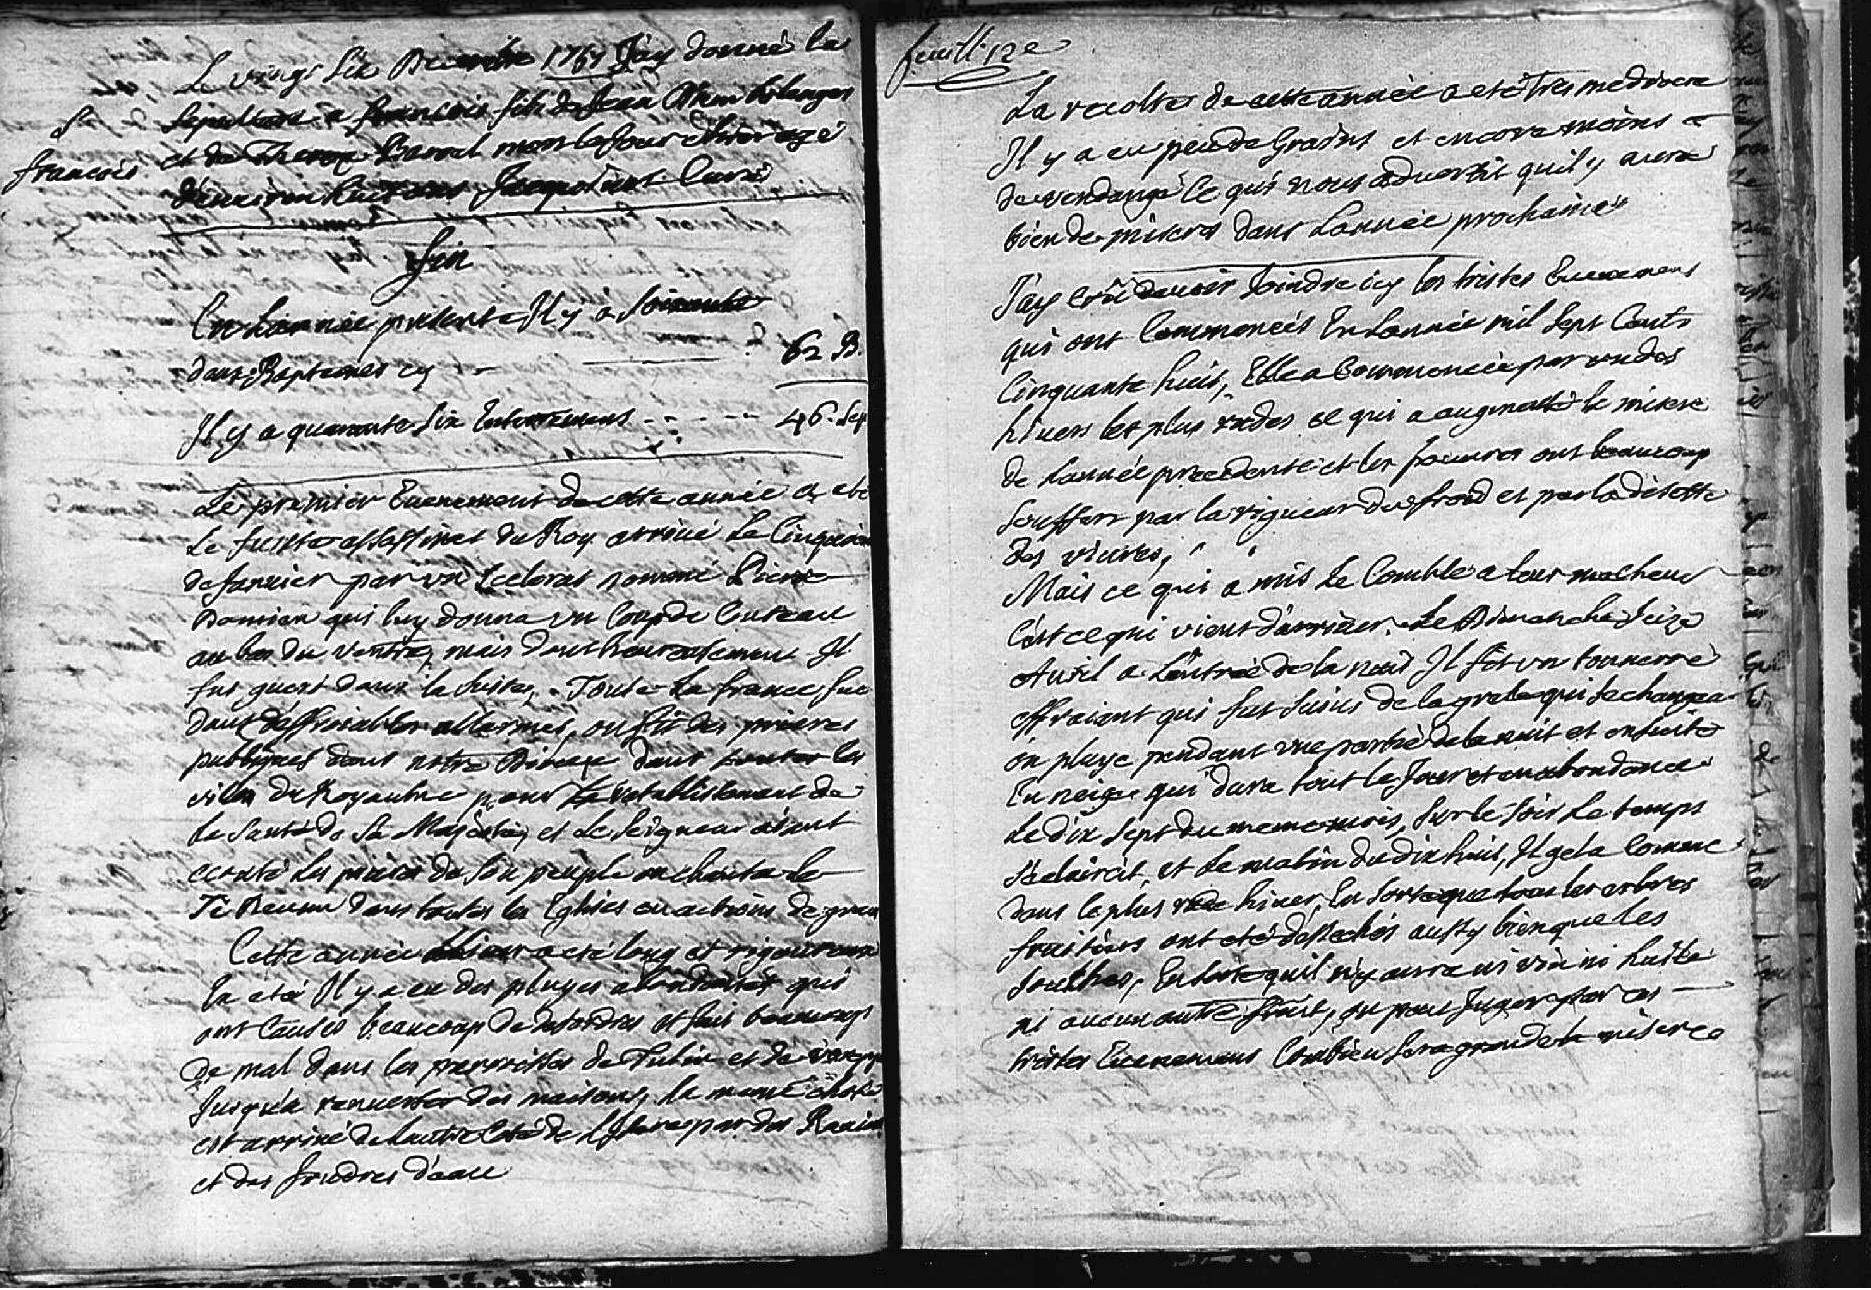 Le vingt six Decembre 1757 J'ay donné la
Sepulture a françois fils de Jean
S.
françois
et de Therese Barral mort le Jour d'hier agé
d'environ huit ans Curé
fin
En L'année presente Il y a Soixante
deux Baptemes cy - 62 B.
Il y a quarante Six Enterremens - - - - - 46. Sep
Le premier Evenement de cette année a ete
Le funeste assassinat du Roy arrivé Le Cinquieme
de Janvier par un Scelerat nommé Pierre
Damien qui luy donna un Coup de Couteau
au bas du ventre, mais dont heureusement Il
fut guerit dans la Suite, Toute La france fut
dans d'effroiables allarmes, on fit des prieres
publiques dans notre Diocese dans toutes les
villes du Royaume pour Le retablissement de
La Santé de Sa Majesté, et Le Seigneur aiant
ecouté Les prieres de Son peuple on chanta Le
Te Deum dans toutes les Eglises en actions de grace
Cette année L'hiver a eté long et rigoureux
En eté Il y a eu des pluyes abondantes qui
ont Causés beaucoup de desordres et fait beaucoup
de mal dans les parroisses de Tulin et de
Jusqu'a renverser des maisons, la meme chose
est arrivé de L'autre Coté de L'Isere par des Ravins
et des foudres d'eau
feuill. 12e
La recolte de cette année a eté Tres mediocre
Il y a eu peu de Grains et encore moins
de vendange Ce qui nous advertit qu'il y aura
bien de misere dans L'année prochaine
J'ay Crû devoir Joindre icy les tristes Evenemens
qui ont Commencés En L'année mil Sept Cents
Cinquante huit, Elle a Commencée par un des
hivers les plus rudes ce qui a augmenté la misere
de L'année precedente et les pauvres ont beaucoup
Souffert par la rigueur du froid et par la disette
des vivres,
Mais ce qui a mis Le Comble a leur malheur
C'est ce qui vient d'arriver. Le Dimanche Seize
Avril a L'entrée de la nuit Il fit un tonnerre
effraiant qui fut Suivis de la grele qui Se changea
en pluye pendant une partie de la nuit et ensuite
En neige qui dura tout le Jour et en abondance
Le dix Sept du meme mois, Sur le Soir Le temps
S'eclaircit, et Le matin du dix huit, Il gela Comme
dans le plus rude hiver, En Sorte que tous les arbres
fruitiers ont eté dessechés aussy bien que les
Souches, En Sorte qu'il n'y aura ni vin ni huile
ni aucun autre fruit, on peut Juger par ces
tristes Evenemens Combien Sera grande la misere